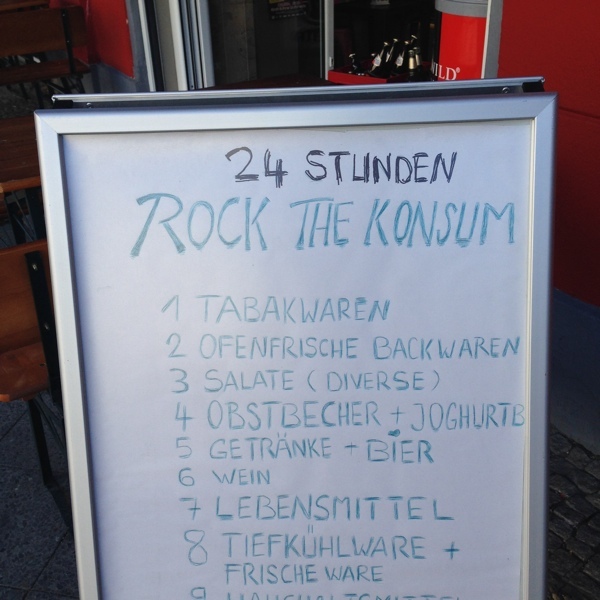 ILD®
24 STUNDEN
ROCK THE KONSUM
1 TABAKWAREN
2 OFENFRISCHE BACKWAREN
3 SALATE (DIVERSE)
4 OBSTBECHER + JOGHURTB
5 GETRÄNKE + BIER
6 WEIN
7 LEBENSMITTEL
8 TIEFKÜHLWARE +
FRISCHE WARE
9 HAUSHALTSMITTEL